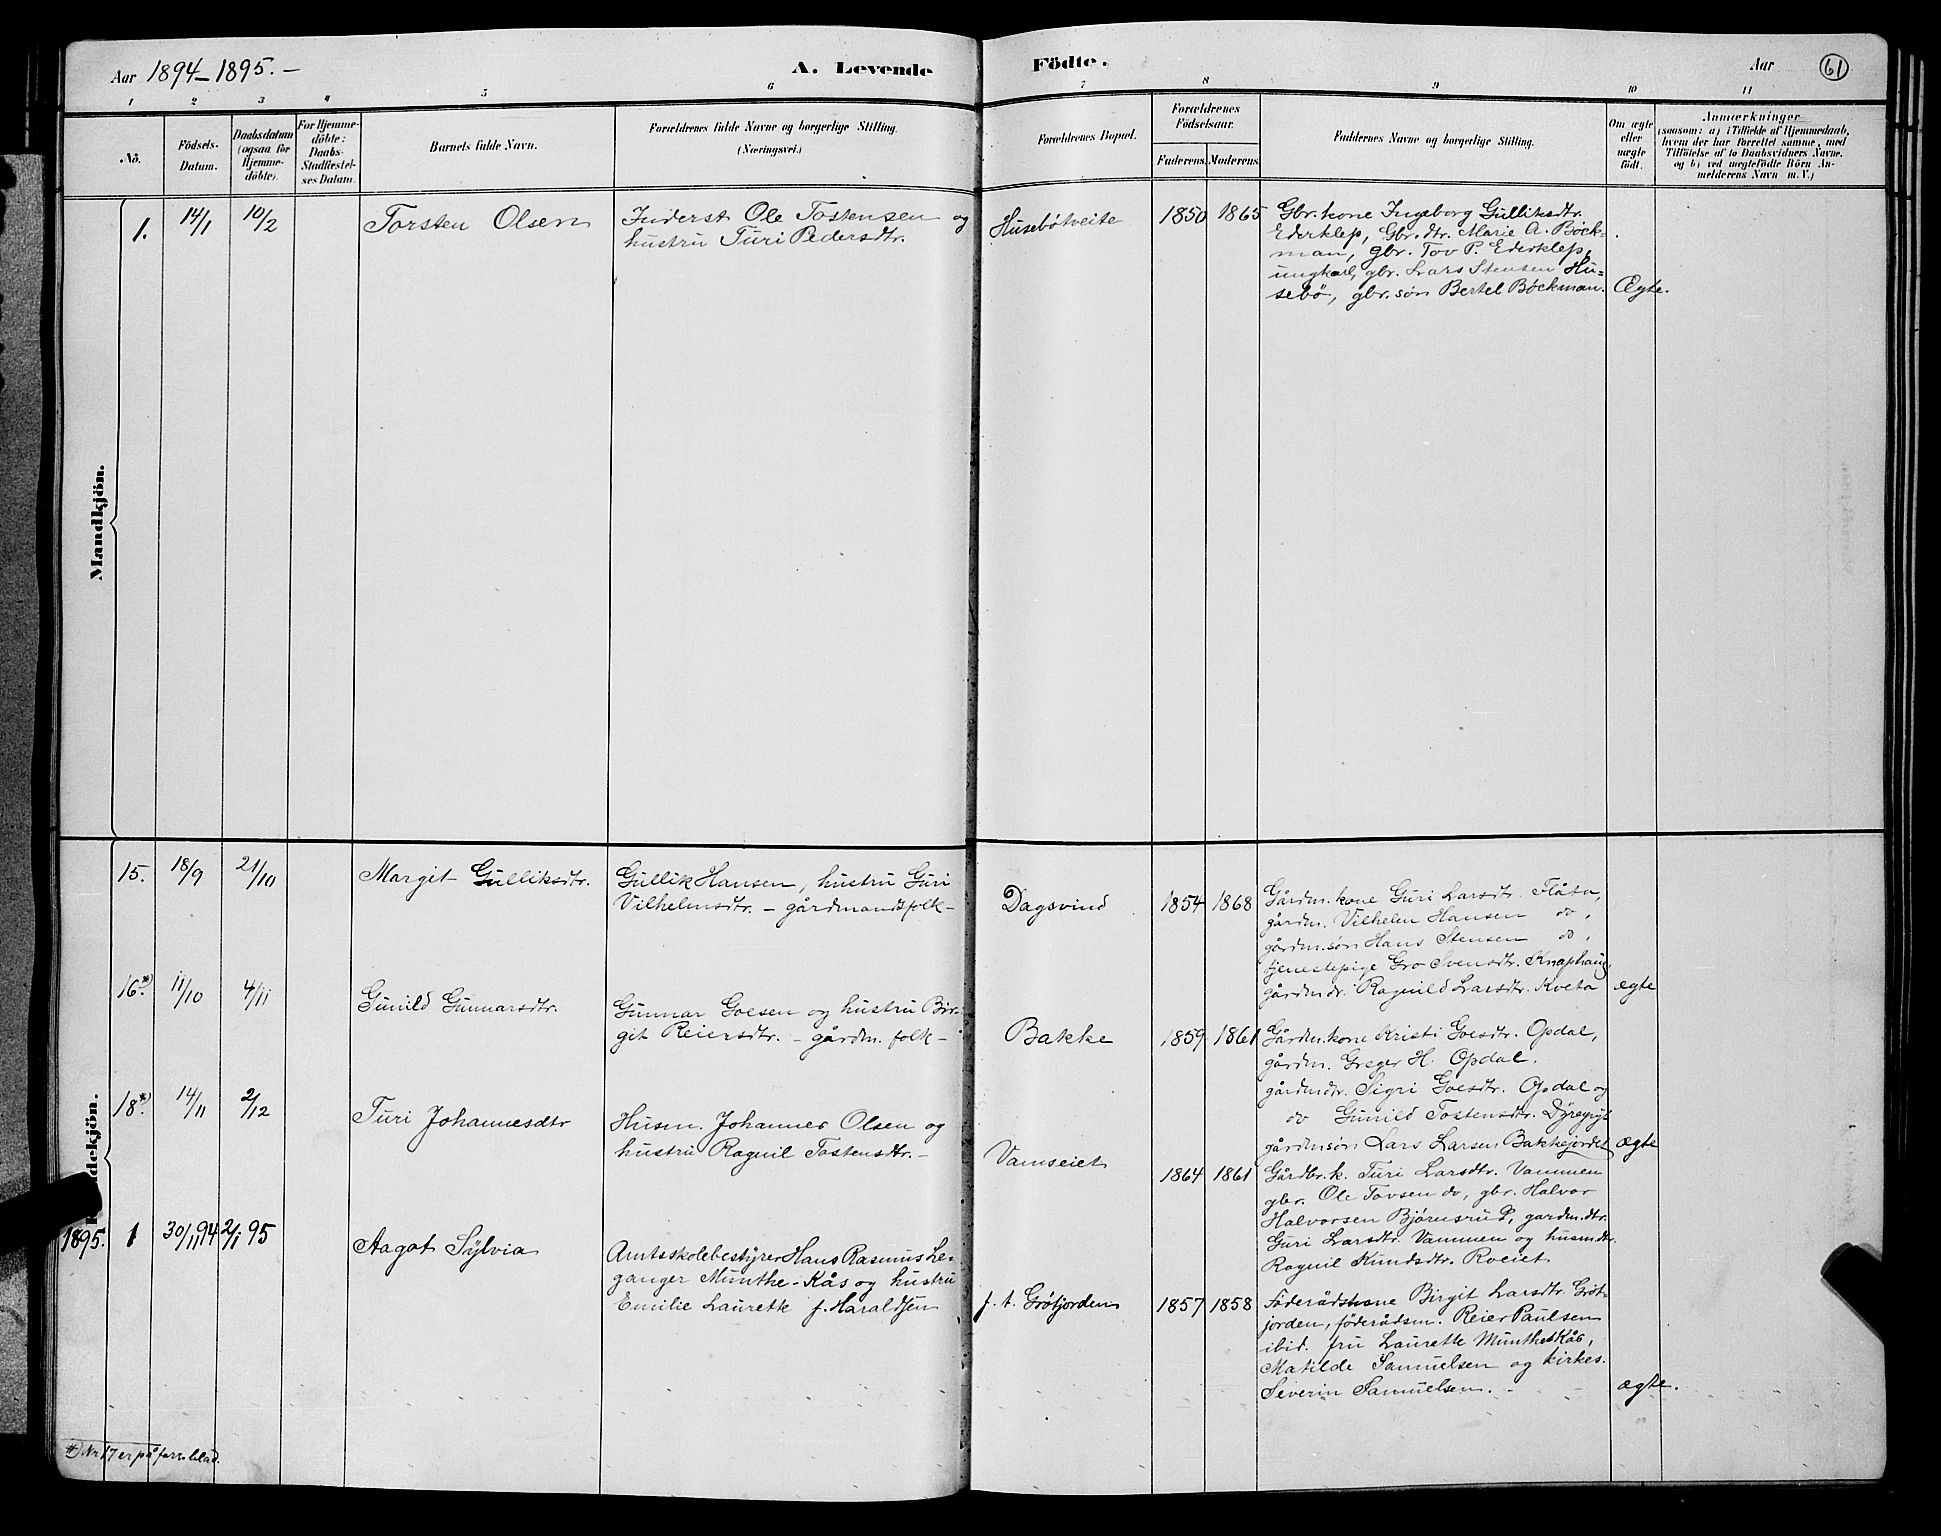 Aar 1894–1895. –
A. Levende Födte.
Aar
61
1 2 3 4 5 6 7 8 9 10 11
Nô.
Födsels-
Datum.
Daabsdatum
(ogsaa for
Hjemme-
döbte).
For Hjemme-
döbte:
Daabs-
Stadfæstel-
ses Datum.
Barnets fulde Navn.
Forældrenes fulde Navne og borgerlige Stilling.
(Næringsvei.)
Forældrenes Bopæl.
Forældrenes
Födselsaar.
Faderens. Moderens.
Faddernes Navne og borgerlige Stilling.
Om ægte
eller
uægte
födt.
Anmærkninger
(saasom: a) i Tilfælde af Hjemmedaab,
hvem der har forrettet samme, med
Tilföielse af to Daabsvidners Navne.
og b) ved uægtefödte Börn An-
melderens Navn m. V.)
Mandkjön.
1. 14/1 10/2
Torsten Olsen
Inderst Ole Tostensen og
hustru Turi Pedersdtr.
Husebøtveite
1850 1865
Gbr. kone Ingeborg Gulliksdtr.
Ederklep, Gbr. dtr. Marie A. Böck-
man, gbr. Tov P. Ederklep,
ungkarl, gbr. Lars Stensen Hu=
sebö, gbr. søn Bertel Böckman.
Ægte.
Kvindekjön.
15. 18/9 21/10
Margit Gulliksdtr.
Gullik Hansen, hustru Guri
Vilhelmsdtr. – gårdmandsfolk –
Dagsvind
1854 1868
Gårdm. kone Guri Larsdtr. Flåta,
gårdm. Vilhelm Hansen do,
gårdm. søn Hans Stensen do,
tjenestepige Gro Svensdtr. Knaphaug,
gårdmdr. Ragnild Larsdtr. Kveta
ægte
16.*) 11/10 4/11
Gunild Gunnarsdtr.
Gunnar Goesen og hustru Bir-
git Reiersdtr. – gårdm. folk –
Bakke
1859 1861
Gårdm. kone Kristi Goesdtr. Opdal,
gårdm. Greger H. Opdal.
gårdmdr. Sigri Goesdtr. Opdal og
do Gunild Tostensdtr. Dyregryt
gårdmsøn Lars Larsen Bakkejordet
ægte
18*) 14/11 2/12
Turi Johannesdtr
Husm. Johannes Olsen og
hustru Ragnil Tostensdtr. –
Vamseiet
1864 1861
Gårdbr. k. Turi Larsdtr. Vammen
gbr. Ole Tovsen do, gbr. Halvor
Halvorsen Bjørnsrud, gardm. dtr.
Guri Larsdtr. Vammen og husmdtr.
Ragnil Knudsdtr. Roeiet
1895. 1 30/11 94 2/1 95
Aagot Sylvia
Amtsskolebestyrer Hans Rasmus Le-
ganger Munthe-Kås og hustru
Emilie Laurette f. Haraldsen
f. t. Grötjorden
1857 1858
Föderådskone Birgit Larsdtr. Gröt-
jorden, föderådsm. Reier Paulsen
ibid. fru Laurette Munthe-Kås,
Matilde Samuelsen og kirkes.
Severin Samuelsen. –
ægte.
*) Nr. 17 er på forr. blad.